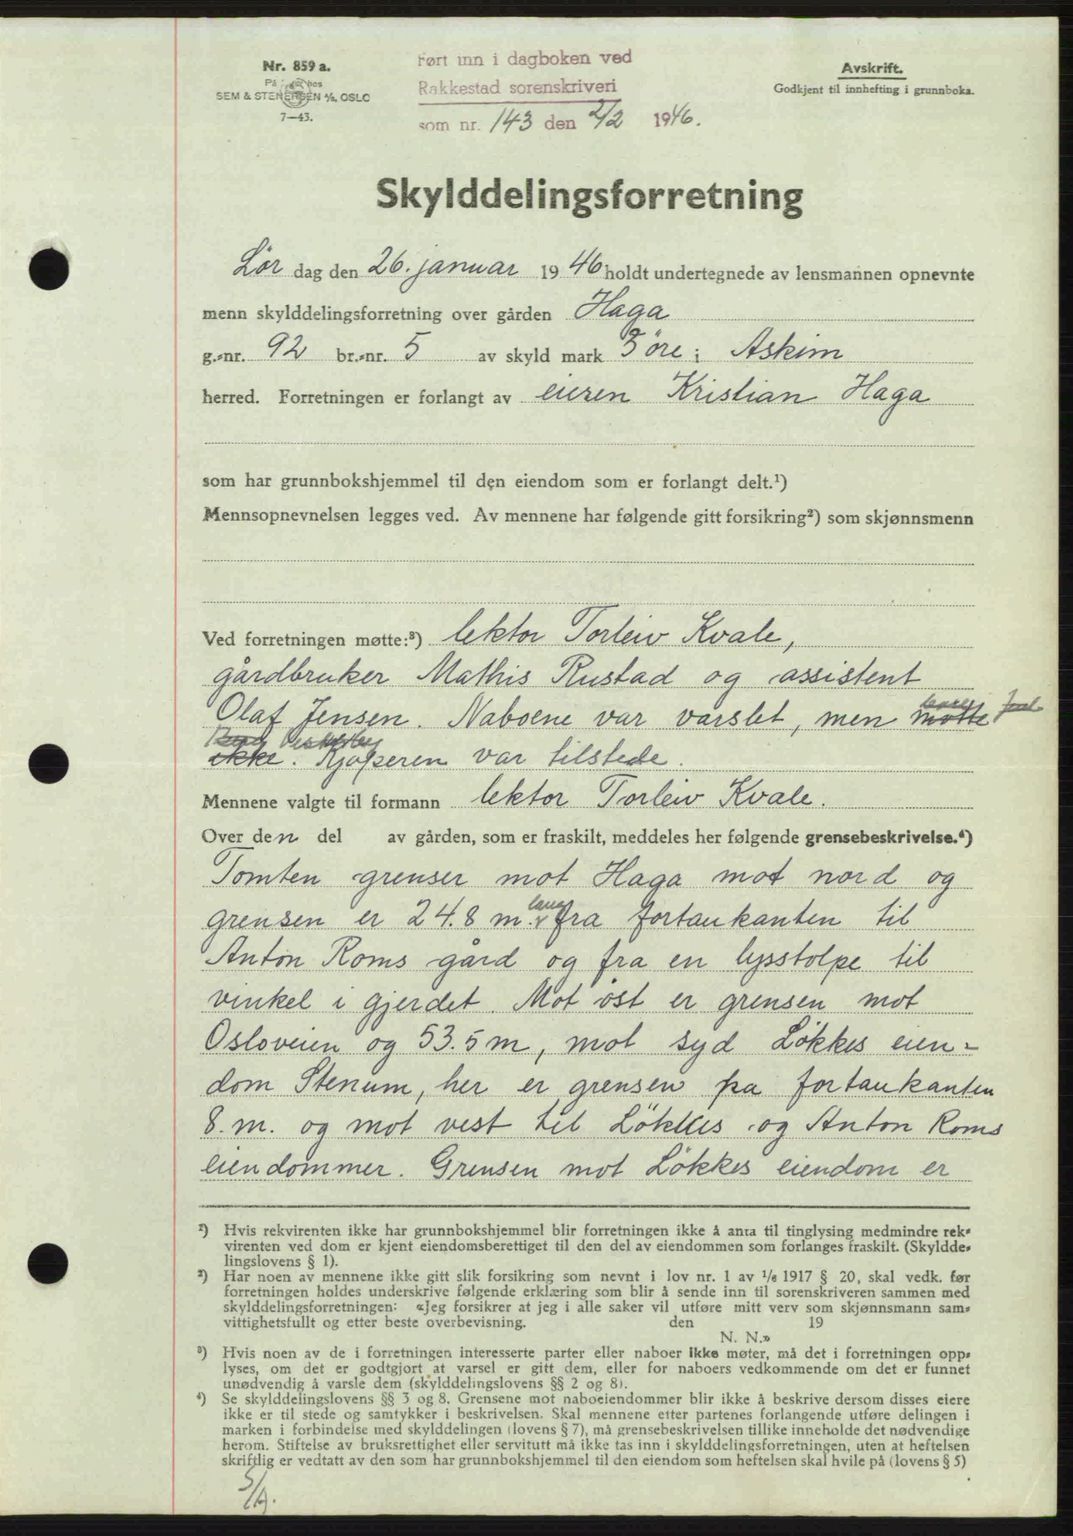 Nr. 859 a.
SEM & STENERSEN A/S, OSLO
7—43.
Ført inn i dagboken ved
Rakkestad sorenskriveri
som nr. 143 den 2/2 1946.
Avskrift.
Godkjent til innhefting i grunnboka.
Skylddelingsforretning
Lör dag den 26. januar 19 46 holdt undertegnede av lensmannen opnevnte
menn skylddelingsforretning over gården Haga
g.-nr. 92 br.-nr. 5 av skyld mark 3 öre i Askim
herred. Forretningen er forlangt av eieren Kristian Haga
som har grunnbokshjemmel til den eiendom som er forlangt delt.¹)
Mennsopnevnelsen legges ved. Av mennene har følgende gitt forsikring²) som skjønnsmenn
Ved forretningen møtte:³) lektor Torleiv Kvale,
gårdbruker Mathis Rustad og assistent
Olaf Jensen. Naboene var varslet, men møtte
ikke. Kjøperen var tilstede.
Mennene valgte til formann lektor Torleiv Kvale.
Over den del av gården, som er fraskilt, meddeles her følgende grensebeskrivelse.⁴)
Tomten grenser mot Haga mot nord og
grensen er 24.8 m. lang fra fortaukanten til
Anton Roms gård og fra en lysstolpe til
vinkel i gjerdet. Mot öst er grensen mot
Osloveien og 53.5 m, mot syd Lökkes eien-
dom Stenum, her er grensen fra fortaukanten
8. m. og mot vest til Lökkes og Anton Roms
eiendommer. Grensen mot Lökkes eiendom er
¹) Hvis rekvirenten ikke har grunnbokshjemmel blir forretningen ikke å anta til tinglysing medmindre rek-
virenten ved dom er kjent eiendomsberettiget til den del av eiendommen som forlanges fraskilt. (Skyldde-
lingslovens § 1).
²) Har noen av mennene ikke gitt slik forsikring som nevnt i lov nr. 1 av 1/6 1917 § 20, skal vedk. før
forretningen holdes underskrive følgende erklæring som blir å sende inn til sorenskriveren sammen med
skylddelingsforretningen: «Jeg forsikrer at jeg i alle saker vil utføre mitt verv som skjønnsmann sam-
vittighetsfullt og etter beste overbevisning. den 19
N. N.»
³) Hvis noen av de i forretningen interesserte parter eller naboer ikke møter, må det i forretningen opp-
lyses, om det er godtgjort at varsel er gitt dem, eller for naboers vedkommende om det er funnet
unødvendig å varsle dem (skylddelingslovens §§ 2 og 8).
⁴) Se skylddelingslovens §§ 3 og 8. Grensene mot naboeiendommer blir ikke å beskrive dersom disses eiere
ikke er til stede og samtykker i beskrivelsen. Skal mennene etter partenes forlangende utføre delingen i
marken i forbindelse med skylddelingen (lovens § 7), må grensebeskrivelsen tillike inneholde det nødvendige
herom. Stiftelse av bruksrettighet eller servitutt må ikke tas inn i skylddelingsforretningen, uten at heftelsen
skriftlig er vedtatt av den som har grunnbokshjemmel til den eiendom som heftelsen skal hvile på (lovens § 5)